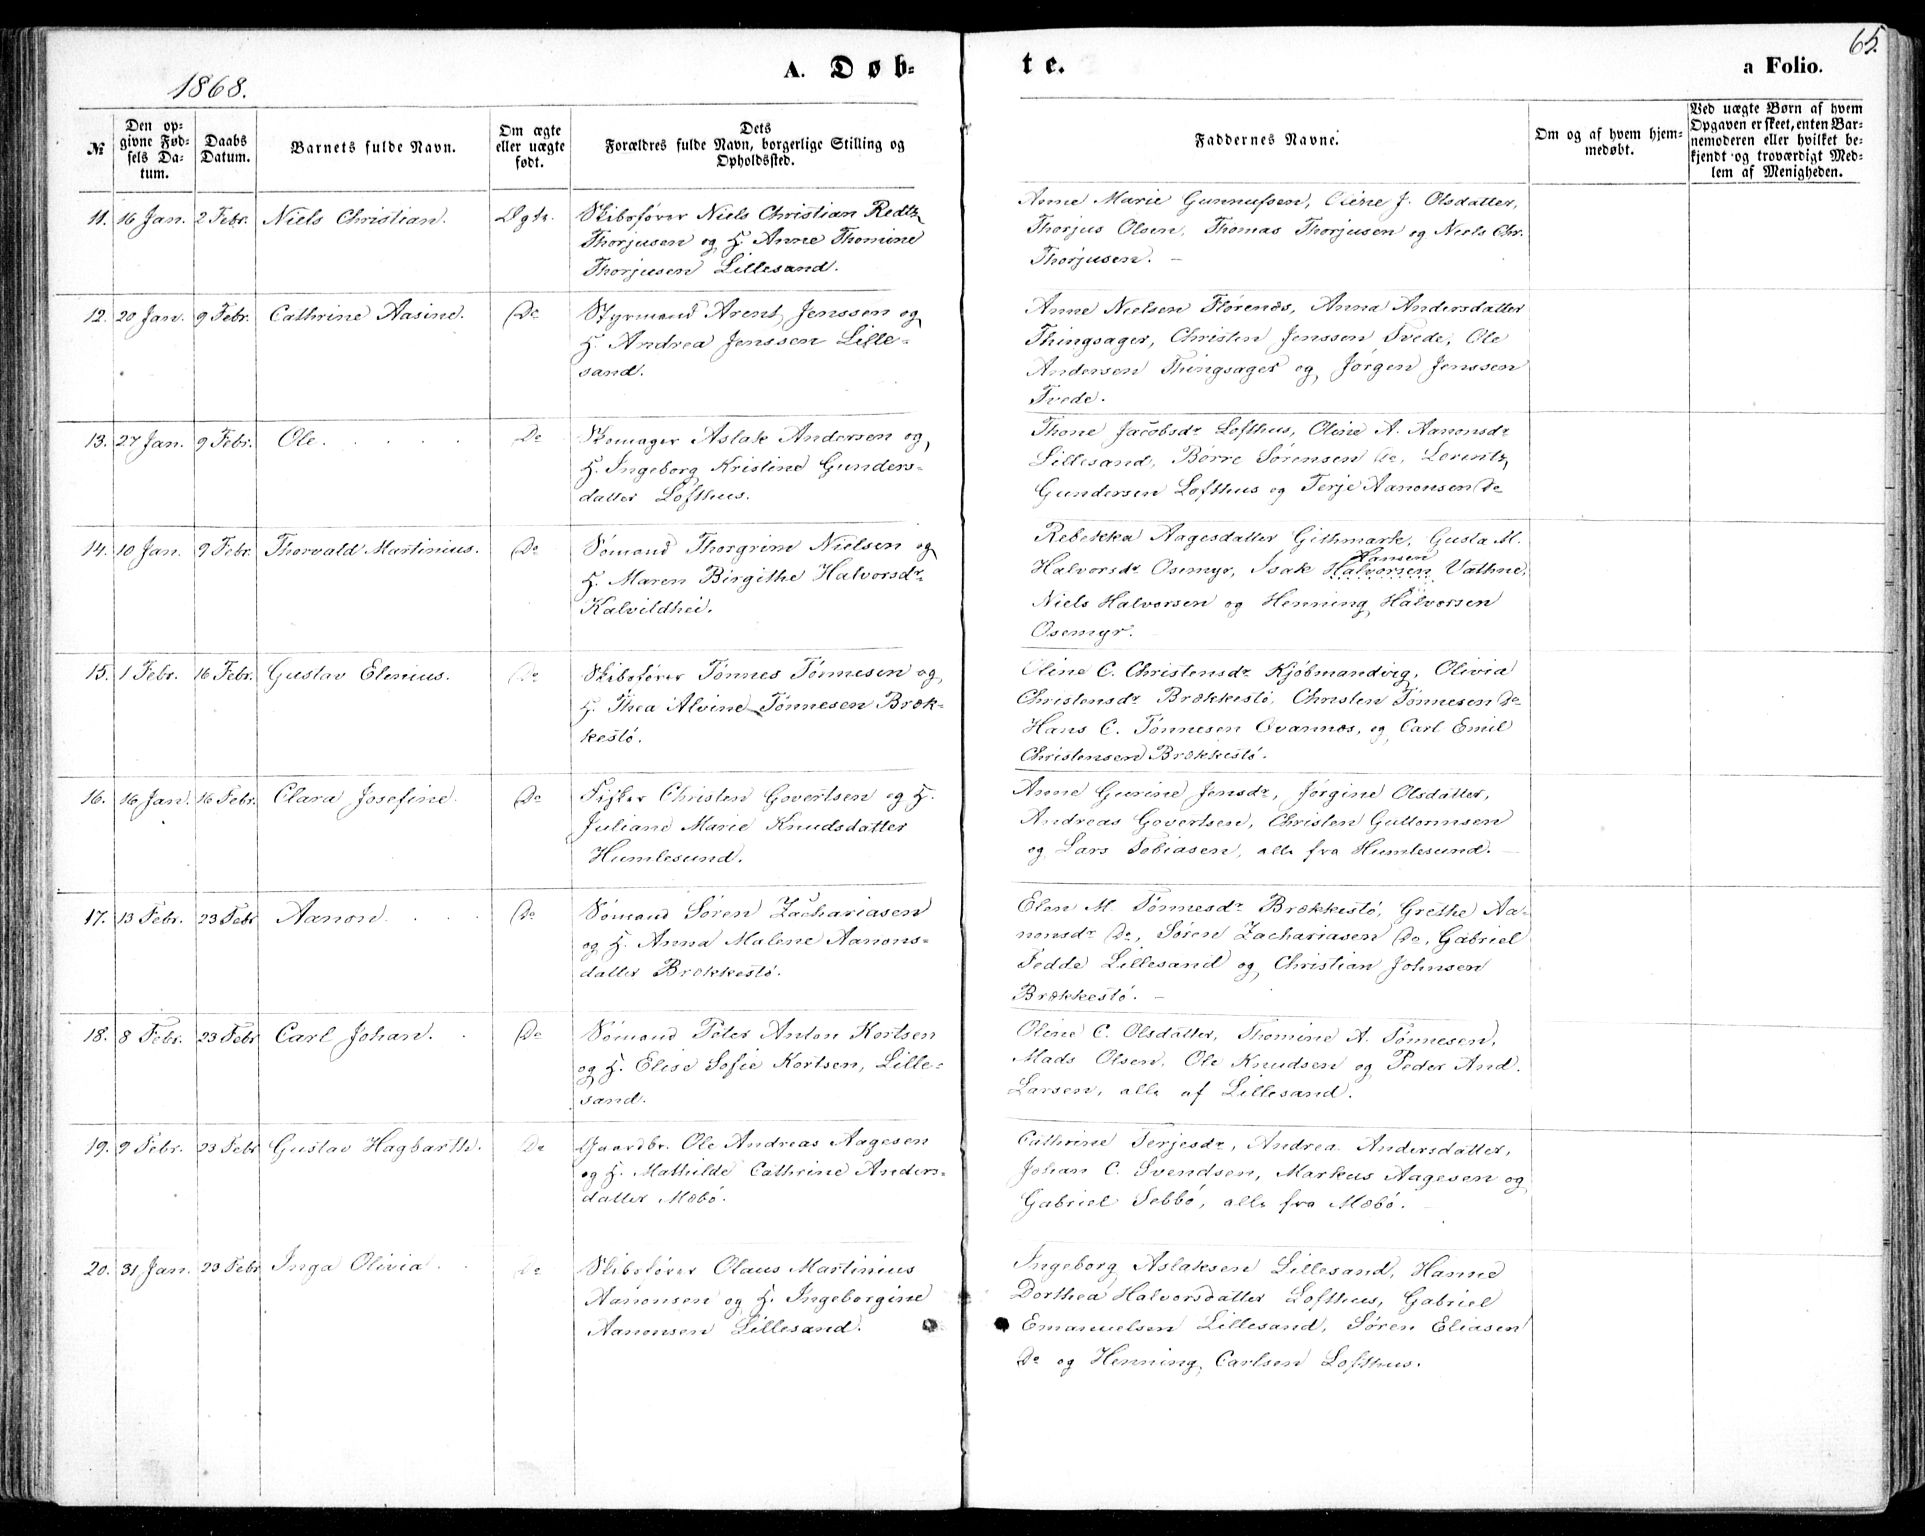 65.
1868.
A. Døb-
te.
a Folio.
№
Den op-
givne Fød-
sels Da-
tum.
Daabs
Datum.
Barnets fulde Navn.
Om ægte
eller uægte
født.
Dets
Forældres fulde Navn, borgerlige Stilling og
Opholdssted.
Faddernes Navne.
Om og af hvem hjem-
medøbt.
Ved uægte Børn af hvem
Opgaven er skeet, enten Bar-
nemoderen eller hvilket be-
kjendt og troværdigt Med-
lem af Menigheden.
11. 16 Jan. 2 Febr. Niels Christian. Ægte.
Skibsfører Niels Christian Redtz
Thorjusen og H. Anne Thomine
Thorjusen Lillesand.
Anne Marie Gunnufsen, J. Olsdatter,
Thorjus Olsen, Thomas Thorjusen og Niels Chr.
Thorjusen. –
12. 20 Jan. 9 Febr. Cathrine Aasine. Do
Styrmand Arent Jenssen og
H. Andrea Jenssen Lille-
sand.
Anne Nielsen Flørenæs, Anna Andersdatter
Thingsager, Christen Jenssen Tvede, Ole
Andersen Thingsager og Jørgen Jenssen
Tvede.
13. 27 Jan. 9 Febr. Ole. Do
Skomager Aslak Andersen og
H. Ingeborg Kristine Gunders-
datter Lofthus.
Thone Jacobsdr Lofthus, Oline A. Aanonsdr
Lillesand, Børre Sørensen Do, Lorentz
Gundersen Lofthus og Terje Aanonsen Do
14. 10 Jan. 9 Febr. Thorvald Martinius. Do
Sømand Thorgrim Nielsen og
H. Maren Birgithe Halvorsdr
Kalvildhei.
Rebekka Aagesdatter Githmark, Gusta M.
Hansen
Halvorsdr Osemyr, Isak Halvorsen Vathne,
Niels Halvorsen og Henning Halvorsen
Osemyr.
15. 1 Febr. 16 Febr. Gustav Elenius. Do
Skibsfører Tønnes Tønnesen og
H. Thea Alvine Tønnesen Bræk-
kestø.
Oline C. Christensdr Kjøbmandvig, Olivia
Christensdr Brækkestø, Christen Tønnesen Do
Hans C. Tønnesen Ovannæs, og Carl Emil
Christensen Brækkestø.
16. 16 Jan. 16 Febr. Clara Josefine. Do
Fisker Christen Govertsen og H.
Juliane Marie Knudsdatter
Humlesund.
Anne Gurine Jensdr, Jørgine Olsdatter,
Andreas Govertsen, Christen Guttormsen
og Lars Tobiasen, alle fra Humlesund. –
17. 13 Febr. 23 Febr Aanon. Do
Sømand Søren Zachariasen
og H. Anna Malene Aanons-
datter Brækkestø.
Elen M. Tønnesdr Brækkestø, Grethe Aa-
nonsdr Do, Søren Zachariasen Do, Gabriel
Fedde Lillesand og Christian Johnsen
Brækkestø. –
18. 8 Febr. 23 Febr Carl Johan. Do
Sømand Peter Anton Kortsen
og H. Elise Sofie Kortsen, Lille-
sand.
Oline C. Olsdatter, Thomine A. Tønnesen,
Mads Olsen, Ole Knudsen og Peder And.
Larsen, alle af Lillesand.
19. 9 Febr. 23 Febr Gustav Hagbarth. Do
Gaardbr. Ole Andreas Aagesen
og H. Mathilde Cathrine Anders-
datter Mæbø.
Cathrine Terjesdr, Andrea Andersdatter,
Johan C. Svendsen, Markus Aagesen og
Gabriel Sebbø, alle fra Mæbø.
20. 31 Jan. 23 Febr Inga Olivia. Do
Skibsfører Olaus Martinius
Aanonsen og H. Ingeborgine
Aanonsen Lillesand.
Ingeborg Aslaksen Lillesand, Hanne
Dorthea Halvorsdatter Lofthus, Gabriel
Emanuelsen Lillesand, Søren Eliasen
Do og Henning Carlsen Lofthus.